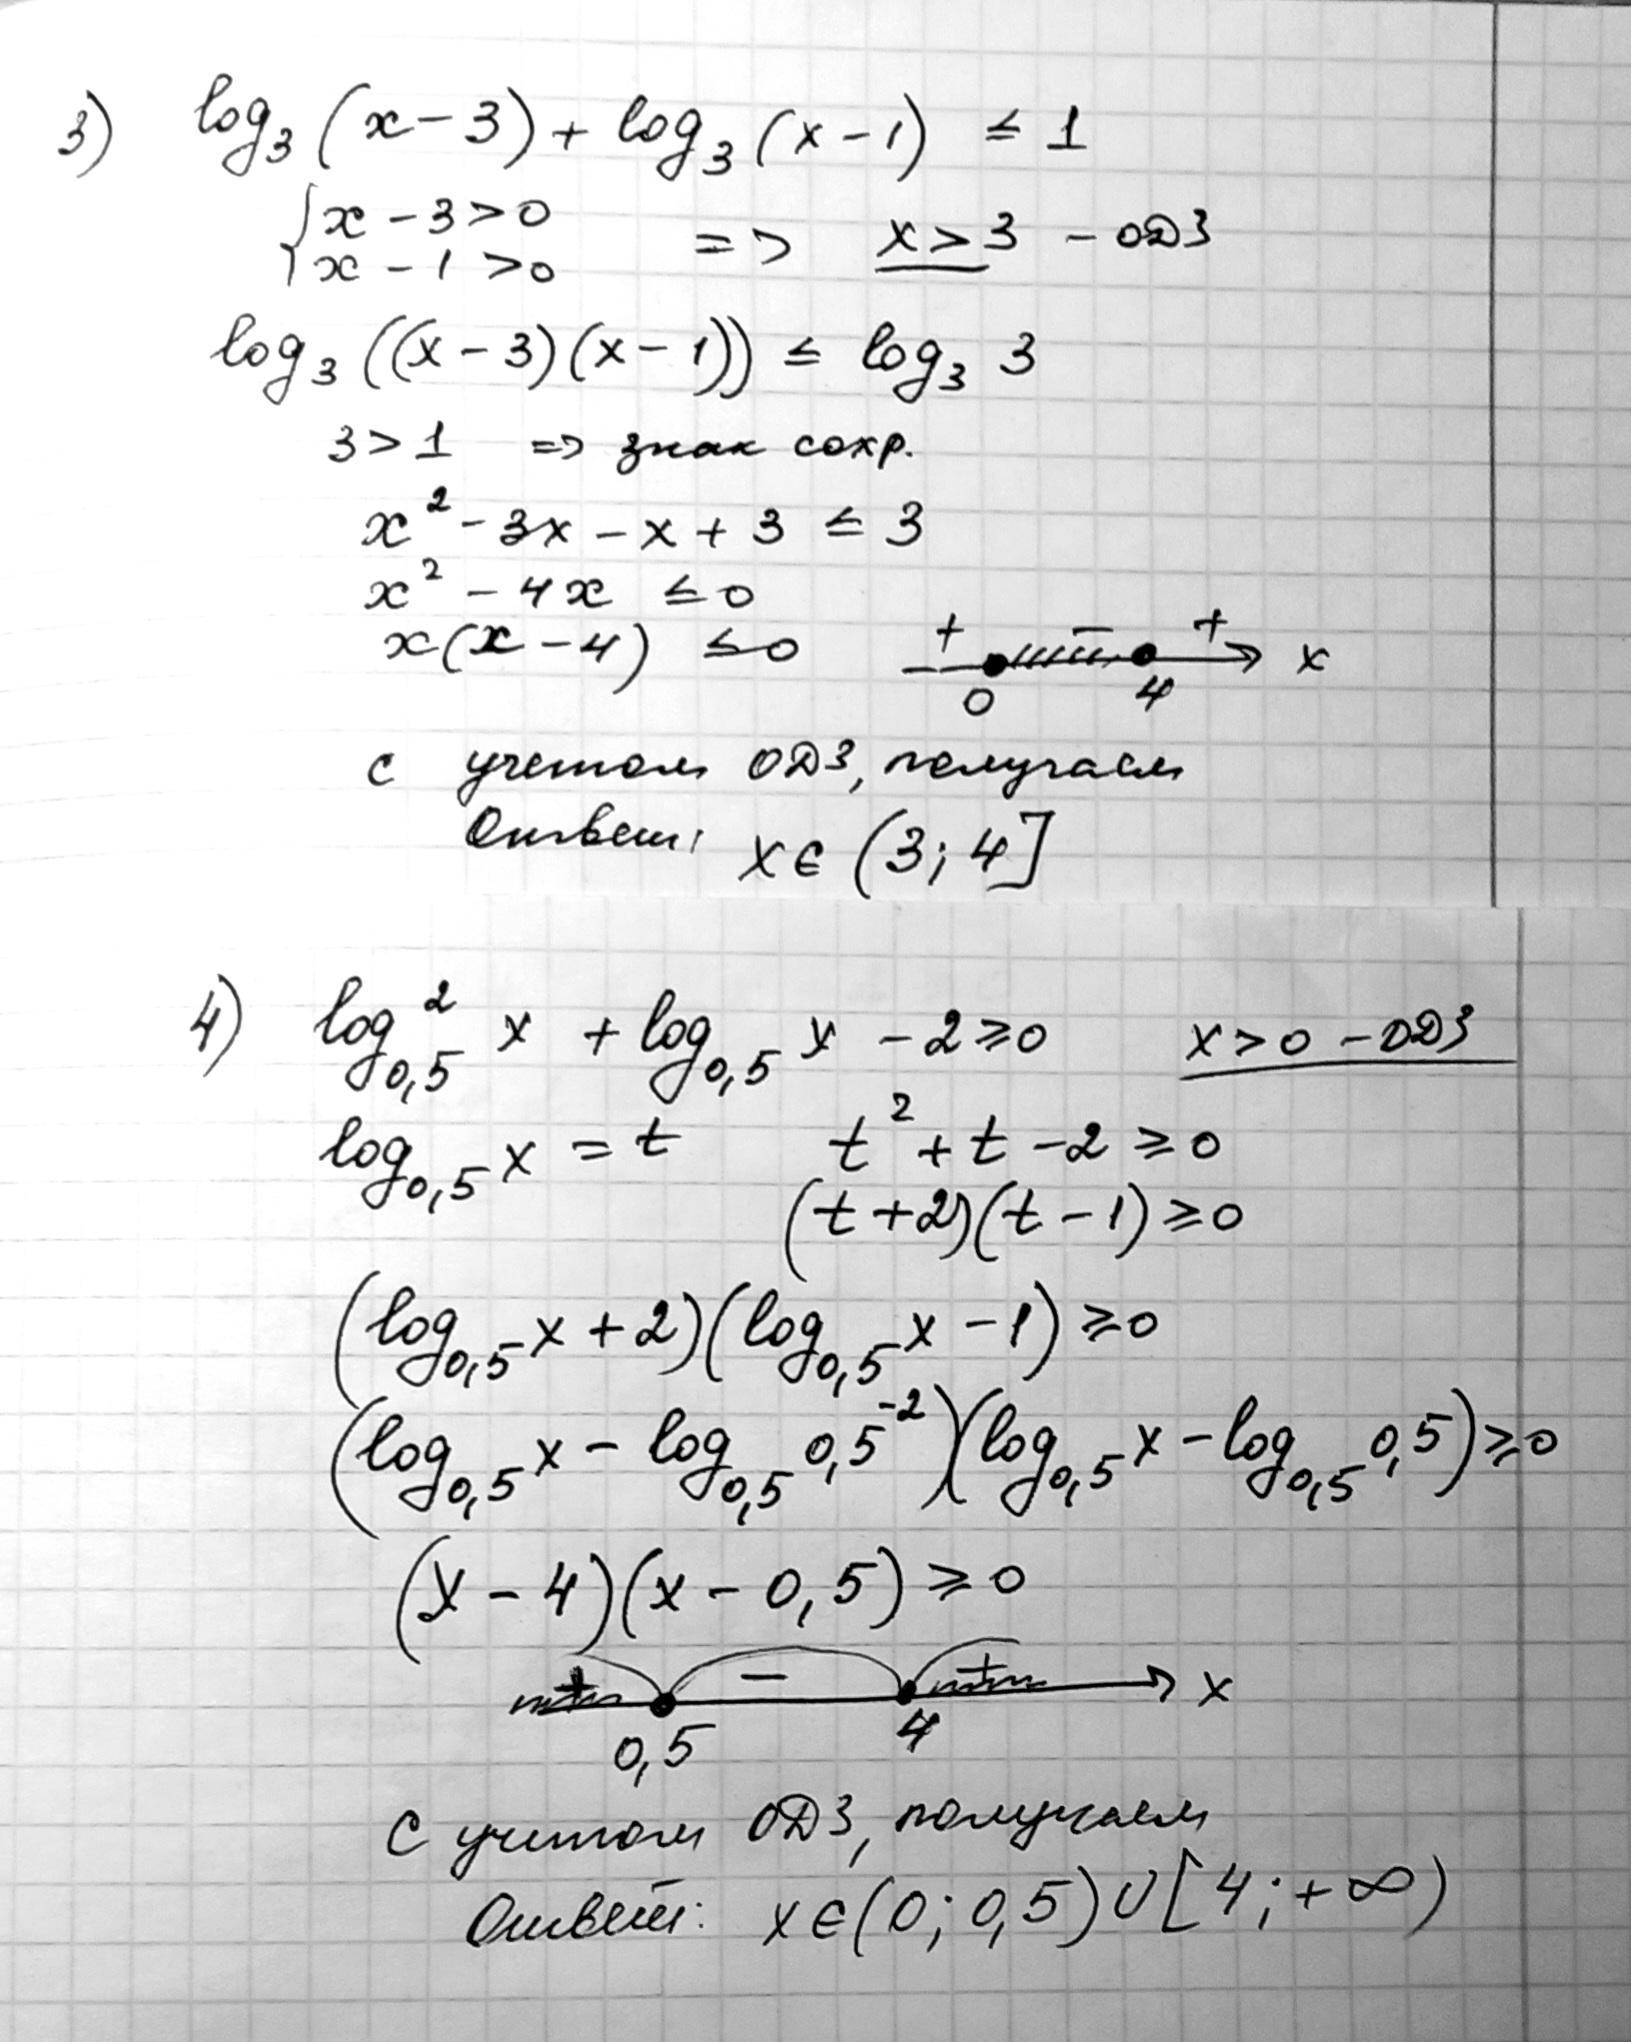 3) log₃(x-3) + log₃(x-1) ≤ 1
{x-3>0
x-1>0 => x>3 - ОДЗ
log₃((x-3)(x-1)) ≤ log₃ 3
3>1 => знак сохр.
x² - 3x - x + 3 ≤ 3
x² - 4x ≤ 0
x(x-4) ≤ 0 + - + x
0 4
с учетом ОДЗ, получаем
Ответ: x∈(3;4]
4) log²₀,₅ x + log₀,₅ x - 2 ≥ 0 x>0 - ОДЗ
log₀,₅ x = t t² + t - 2 ≥ 0
(t+2)(t-1) ≥ 0
(log₀,₅ x + 2)(log₀,₅ x - 1) ≥ 0
(log₀,₅ x - log₀,₅ 0,5⁻²)(log₀,₅ x - log₀,₅ 0,5) ≥ 0
(x-4)(x-0,5) ≥ 0
+ - + x
0,5 4
С учетом ОДЗ, получаем
Ответ: x∈(0;0,5)∪[4;+∞)